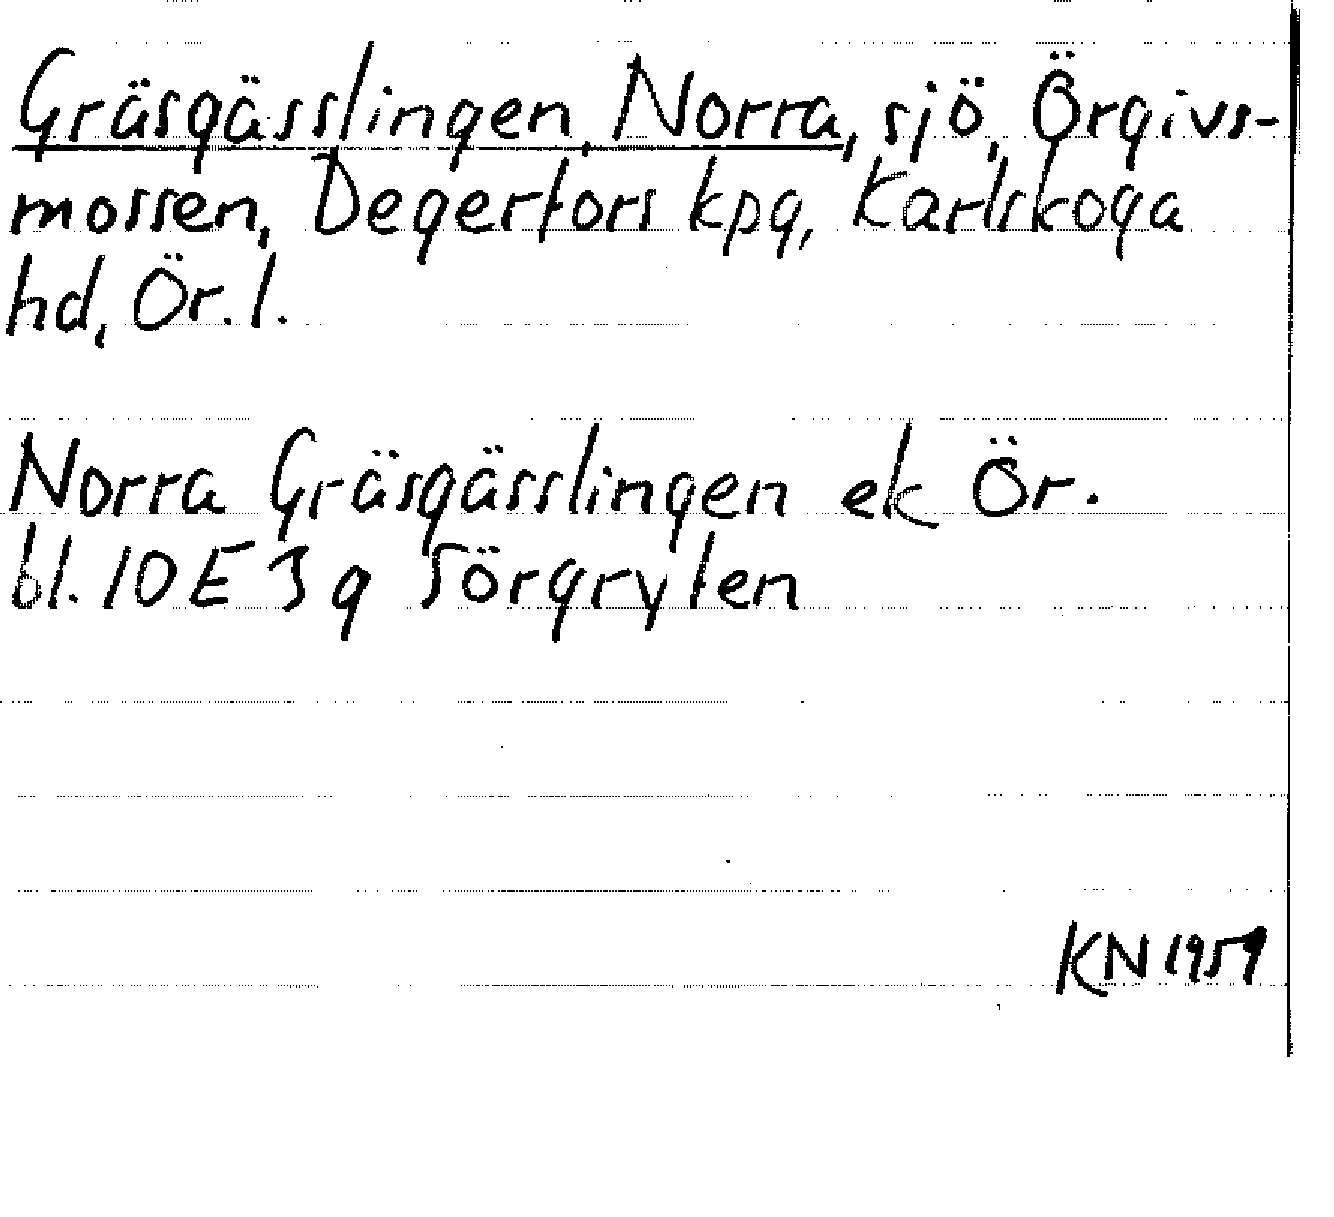 Gräsgässlingen, Norra, sjö, Örgivs-
mossen, Degerfors kpg, Karlskoga
hd, Ör. l.
Norra Gräsgässlingen ek Ör.
bl. 10E 3g Sörgrylen
KN 1959